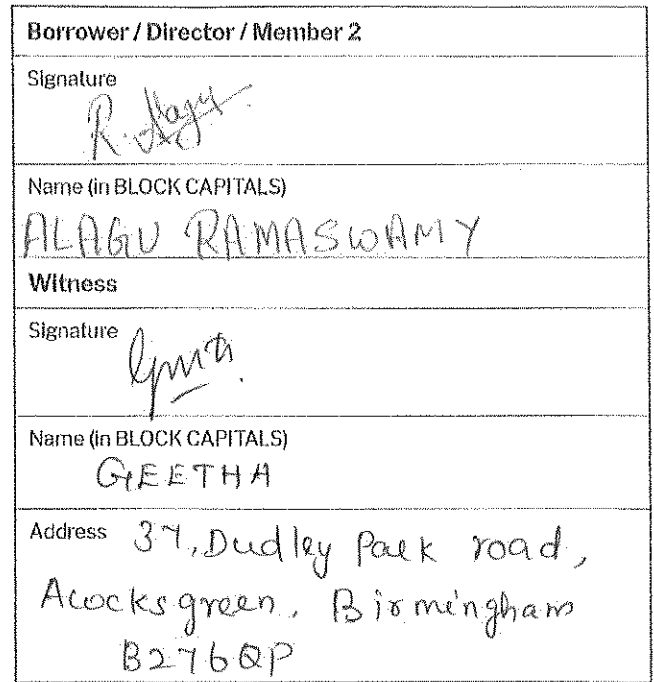 Borrower / Director / Member 2
Signature
R. Alagu
Name (in BLOCK CAPITALS)
ALAGU RAMASWAMY
Witness
Signature
Name (in BLOCK CAPITALS)
GEETHA
Address 37, Dudley Park road,
Acocksgreen, Birmingham
B276QP